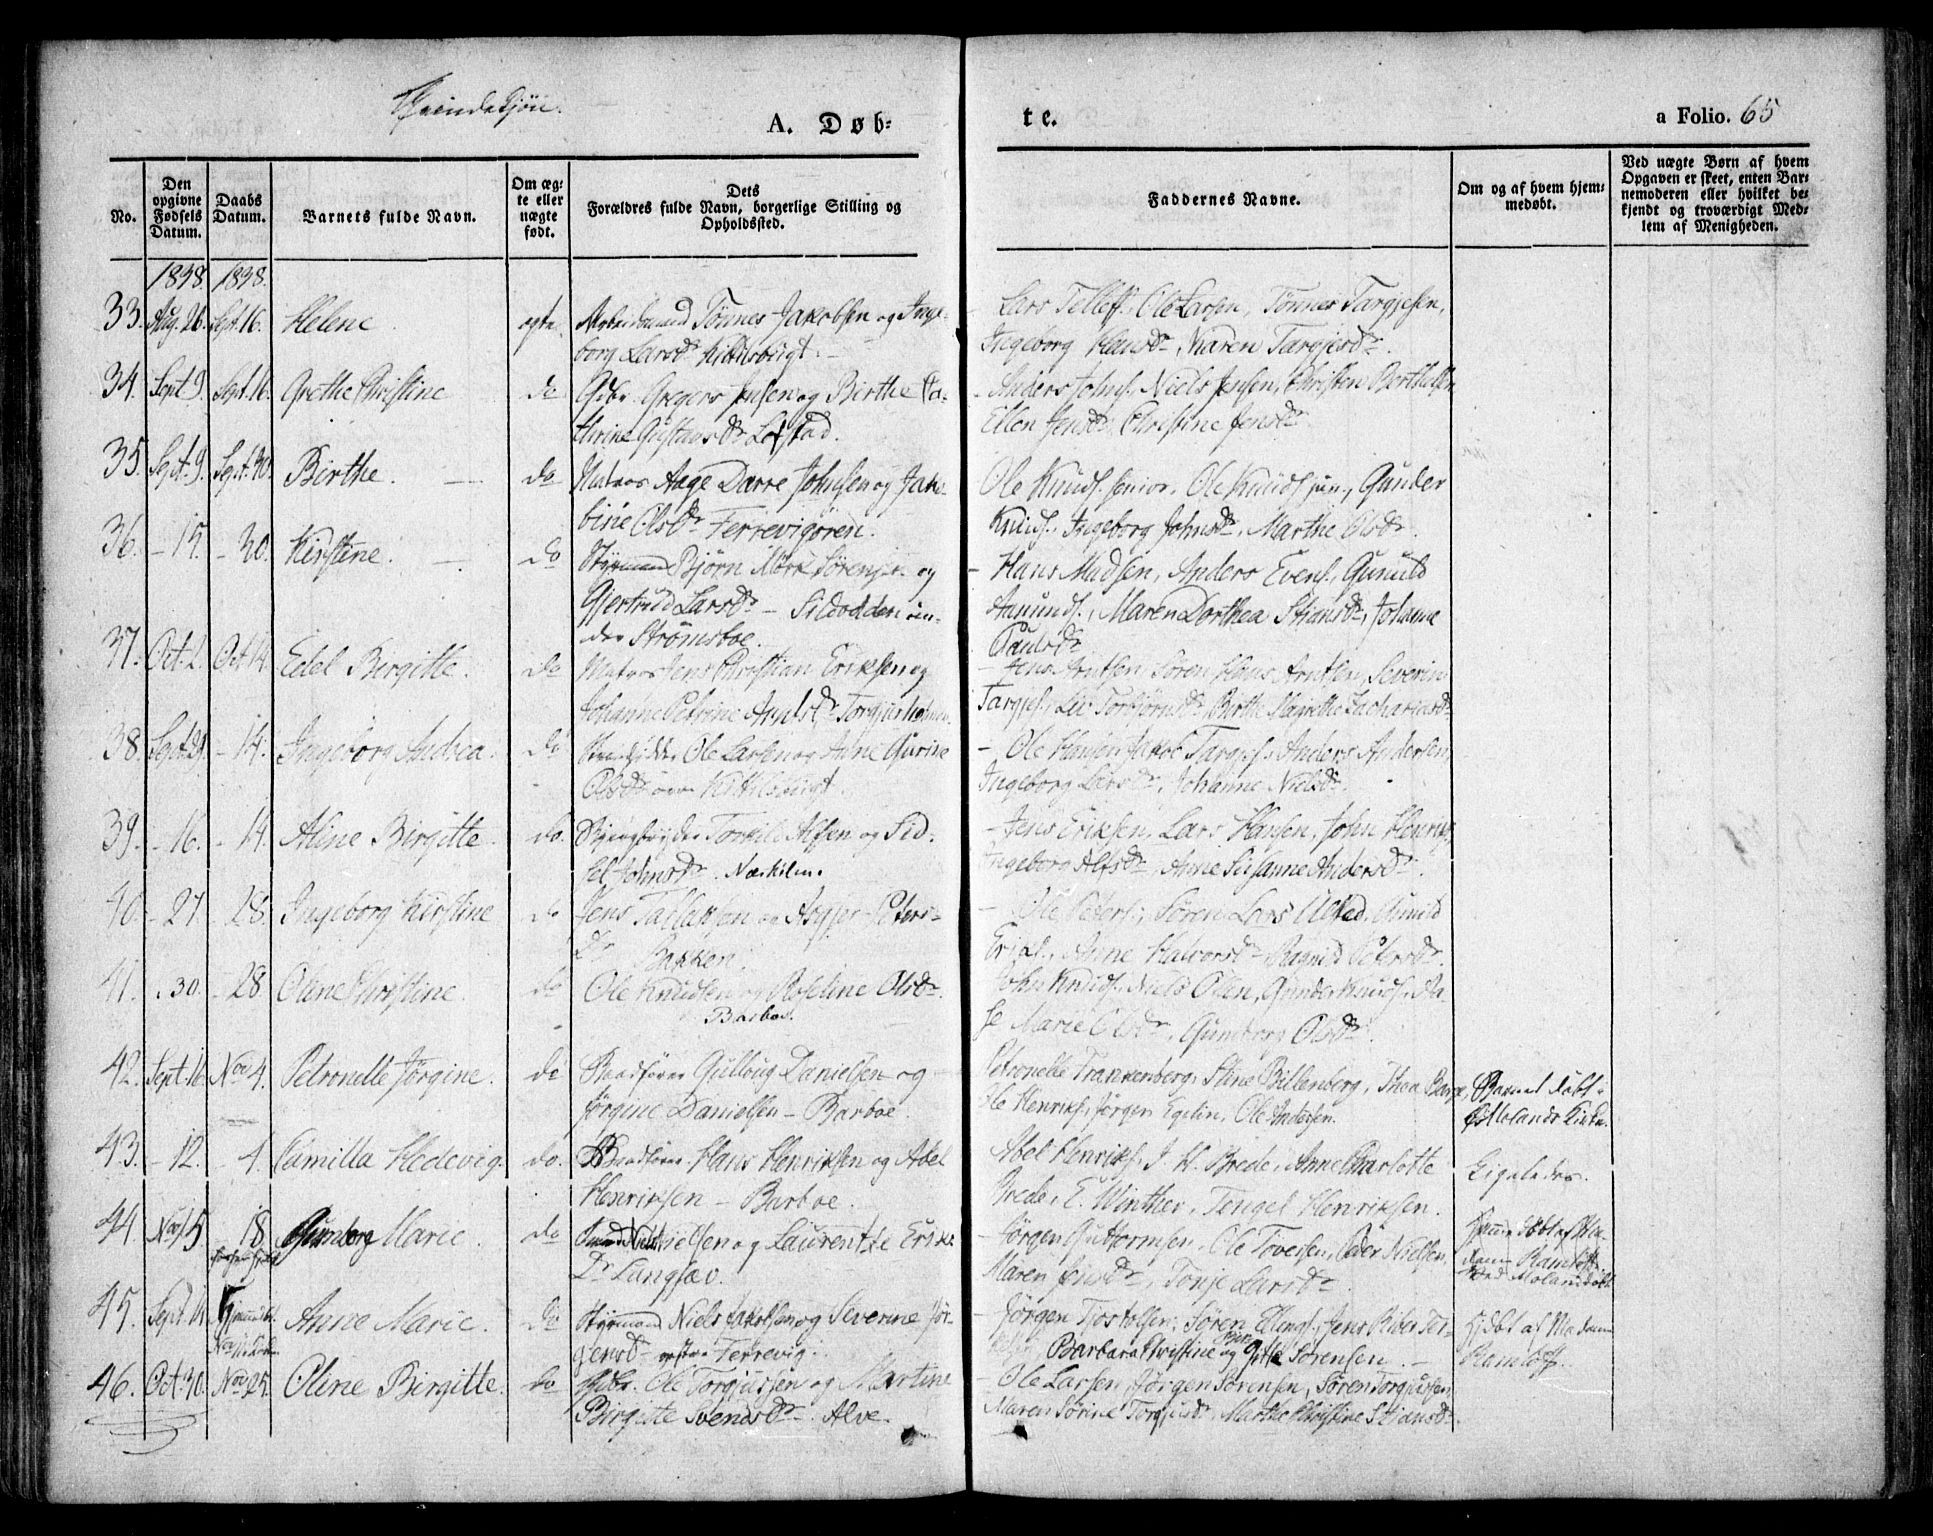 Qvindekjön.
A. Døb-
te.
a Folio. 65
No.
Den opgivne Fødsels Datum.
Daabs Datum.
Barnets fulde Navn.
Om ægte eller uægte født.
Dets Forældres fulde Navn, borgerlige Stilling og Opholdssted.
Faddernes Navne.
Om og af hvem hjemmedøbt.
Ved uægte Børn af hvem Opgaven er skeet, enten Barnemoderen eller hvilket bekjendt og troværdigt Medlem af Menigheden.
1838. 1838.
33. Aug. 26. Sept. 16. Helene ægte Arbeidsmand Tönnes Jakobsen og Inge-
borg Larsdr Kittelsbugt.
Lars Tellefs., Ole Larsen, Tönnes Targjesen,
Ingeborg Hansdr, Maren Targjesdr.
34. Sept 9. Sept. 16. Grethe Christine do Gdbr. Gregers Jensen og Birthe Ca-
thrine Gustavsdr Lofstad.
Anders Johns., Niels Jensen, Christen Berthelsen
Ellen Jensdr, Christine Jensdr
35. Sept. 9. Sept. 30. Birthe. do Matros Aage Darre Johnsen og Jako-
bine Olsdr Ferrevigören.
Ole Knuds. senior, Ole Knuds. jun., Gunder
Knuds., Ingeborg Johnsdr, Marthe Olsdr.
36. - 15. - 30. Kirstine. do Styrmand Björn Mörk Sörensen og
Gjertrud Larsdr - Sildodden un-
der Strömsboe.
- Hans Madsen, Anders Evens., Gunuld
Aanunds., Maren Dorthea Stiansdr, Johanne
Paulsdr
37. Oct. 2. Oct. 14. Edel Birgitte. do Matros Jens Christian Eriksen og
Johanne Petrine Arntsdr Torgjusholmen.
- Jens Arntsen, Sören Hans Arntsen, Severin
Targjes., Liv Torbjörnsdr, Birthe Magrethe Zachariasdr
38. Sept. 29. - 14. Ingeborg Andrea. do Ole Larsen og Anne Gurine
Olsdr Kittelsbugt.
- Ole Hansen, Jakob Targjes., Anders Andersen,
Ingeborg Larsdr, Johanne Nielsdr.
39. - 16. - 14. Aline Birgitte. do. Torkild Alfsen og Sid-
sel Johnsdr. Næskilen.
- Jens Eriksen, Lars Hansen, John Henriks.,
Ingeborg Alfsdr, Anne Susanne Andersdr.
40. - 27 - 28. Ingeborg Kirstine do Jens Tallaksen og Asgjer Peters-
dr Bakken.
- Ole Peders., Sören Lars Ulstad, Gunuld
Eriks., Anne Halvorsdr Ragnild Petersdr.
41. - 30. - 28 Oline Christine. do Ole Knudsen og Roseline Olsdr.
Barboe.
John Knuds., Niels Olsen, Gunder Knuds., Aa-
se Marie Olsdr, Gunborg Olsdr.
42. Sept. 16. Nov 4. Petronelle Jörgine. do Baadförer Gulloug Danielsen og
Jörgine Danielsen - Barboe.
Petronelle Trankenberg, Stine Billenberg, Thea Barge,
Ole Henriks., Jörgen Egelin, Ole Andersen.
Barnet döbt i
Östmolands Kirke.
43. - 12. 4. Camilla Hedevig. do. Baadförer Hans Henriksen og Abel
Henriksen - Barboe.
Abel Henriks., J. H. Brede, Anne Charlotte
Brede, E. Winther, Tengel Henriksen.
Ligeledes.
44. Nov. 5 18. Gunborg Marie. do Knud Nielsen og Laurentze Eriks-
Dr Langsæv.
- Jörgen Guttormsen, Ole Töversen, Peder Nielsen,
Maren Jensdr, Tonje Larsdr.
Hjemmedöbt af Ma-
dam Ramløff
45. Sept. 14. Anne Marie. do Styrmand Niels Jakobsen og Severine Jör-
gensdr östre Ferrevig.
- Jörgen Tjostolsen, Sören Ellings., Jens Rider Ter-
Barbara Christine og Gitte Sörensen. -
Hjdöbt af Madam
Ramløff.
46. Oct. 30. Nov 25. Oline Birgitte. do Gdbr. Ole Torgjussen og Martine
Birgitte Svendsdr. Alve.
- Ole Larsen, Jörgen Sörensen, Sören Torgjussen,
Maren Sörine Torgjusdr, Marthe Christine Stiansdr.